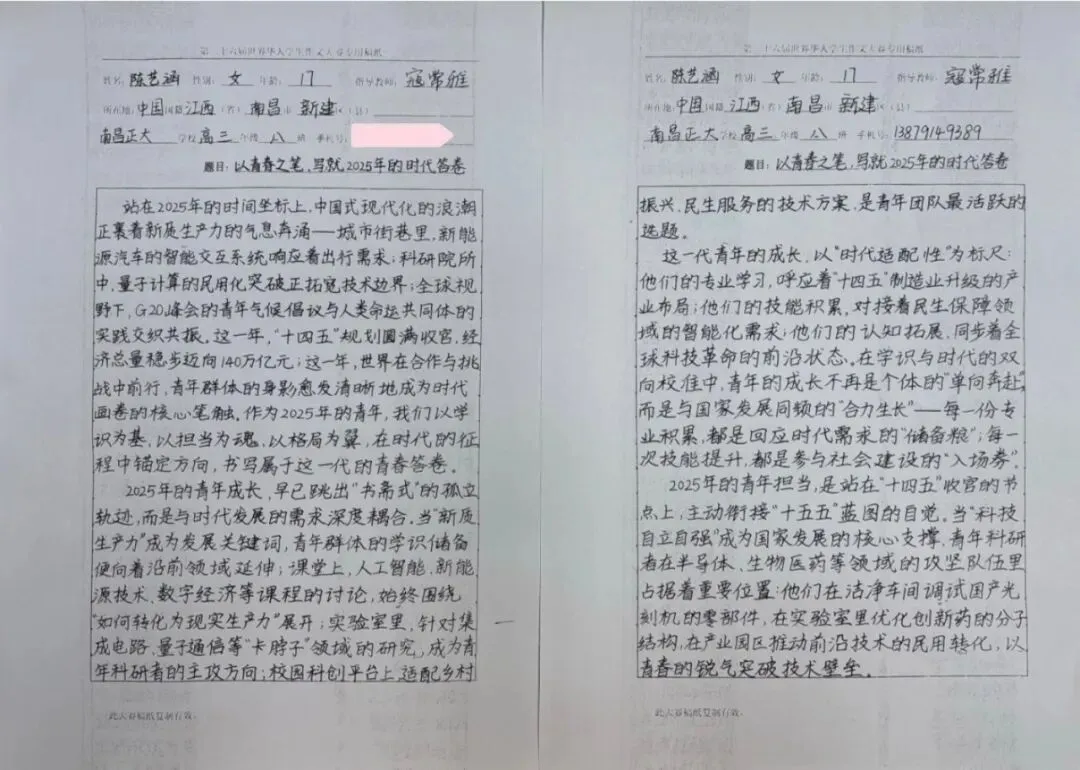 第二十六届世界华人学生作文大赛专用稿纸
姓名: 陈艺涵 性别: 女 年龄: 17 指导教师: 寇常雅
所在地: 中国 国籍 江西 (省) 南昌 市 新建 区(县)
南昌正大 学校 高三 年级 八 班 手机号:
题目: 以青春之笔,写就2025年的时代答卷
站在2025年的时间坐标上,中国式现代化的浪潮
正裹着新质生产力的气息奔涌——城市街巷里,新能
源汽车的智能交互系统响应着出行需求;科研院所
中,量子计算的民用化突破正拓宽技术边界;全球视
野下,G20峰会的青年气候倡议与人类命运共同体的
实践交织共振。这一年,“十四五”规划圆满收官,经
济总量稳步迈向140万亿元;这一年,世界在合作与挑
战中前行,青年群体的身影愈发清晰地成为时代
画卷的核心笔触。作为2025年的青年,我们以学
识为基,以担当为魂,以格局为翼,在时代的征
程中锚定方向,书写属于这一代的青春答卷。
2025年的青年成长,早已跳出“书斋式”的孤立
轨迹,而是与时代发展的需求深度耦合。当“新质
生产力”成为发展关键词,青年群体的学识储备
便向着沿前领域延伸;课堂上,人工智能、新能
源技术、数字经济等课程的讨论,始终围绕
“如何转化为现实生产力”展开;实验室里,针对集
成电路、量子通信等“卡脖子”领域的研究,成为青
年科研者的主攻方向;校园科创平台上,适配乡村
此大赛稿纸复制有效。
第二十六届世界华人学生作文大赛专用稿纸
姓名: 陈艺涵 性别: 女 年龄: 17 指导教师: 寇常雅
所在地: 中国 国籍 江西 (省) 南昌 市 新建 区(县)
南昌正大 学校 高三 年级 八 班 手机号: 13879149389
题目: 以青春之笔,写就2025年的时代答卷
振兴、民生服务的技术方案,是青年团队最活跃的
选题。
这一代青年的成长,以“时代适配性”为标尺:
他们的专业学习,呼应着“十四五”制造业升级的产
业布局;他们的技能积累,对接着民生保障领
域的智能化需求;他们的认知拓展,同步着全
球科技革命的前沿状态。在学识与时代的双
向校准中,青年的成长不再是个体的“单向奔赴”,
而是与国家发展同频的“合力生长”——每一份专
业积累,都是回应时代需求的“储备粮”;每一
次技能提升,都是参与社会建设的“入场券”。
2025年的青年担当,是站在“十四五”收官的节
点上,主动衔接“十五五”蓝图的自觉。当“科技
自立自强”成为国家发展的核心支撑,青年科研
者在半导体、生物医药等领域的攻坚队伍里
占据着重要位置:他们在洁净车间调试国产光
刻机的零部件,在实验室里优化创新药的分子
结构,在产业园区推动前沿技术的民用转化,以
青春的锐气突破技术壁垒。
此大赛稿纸复制有效。